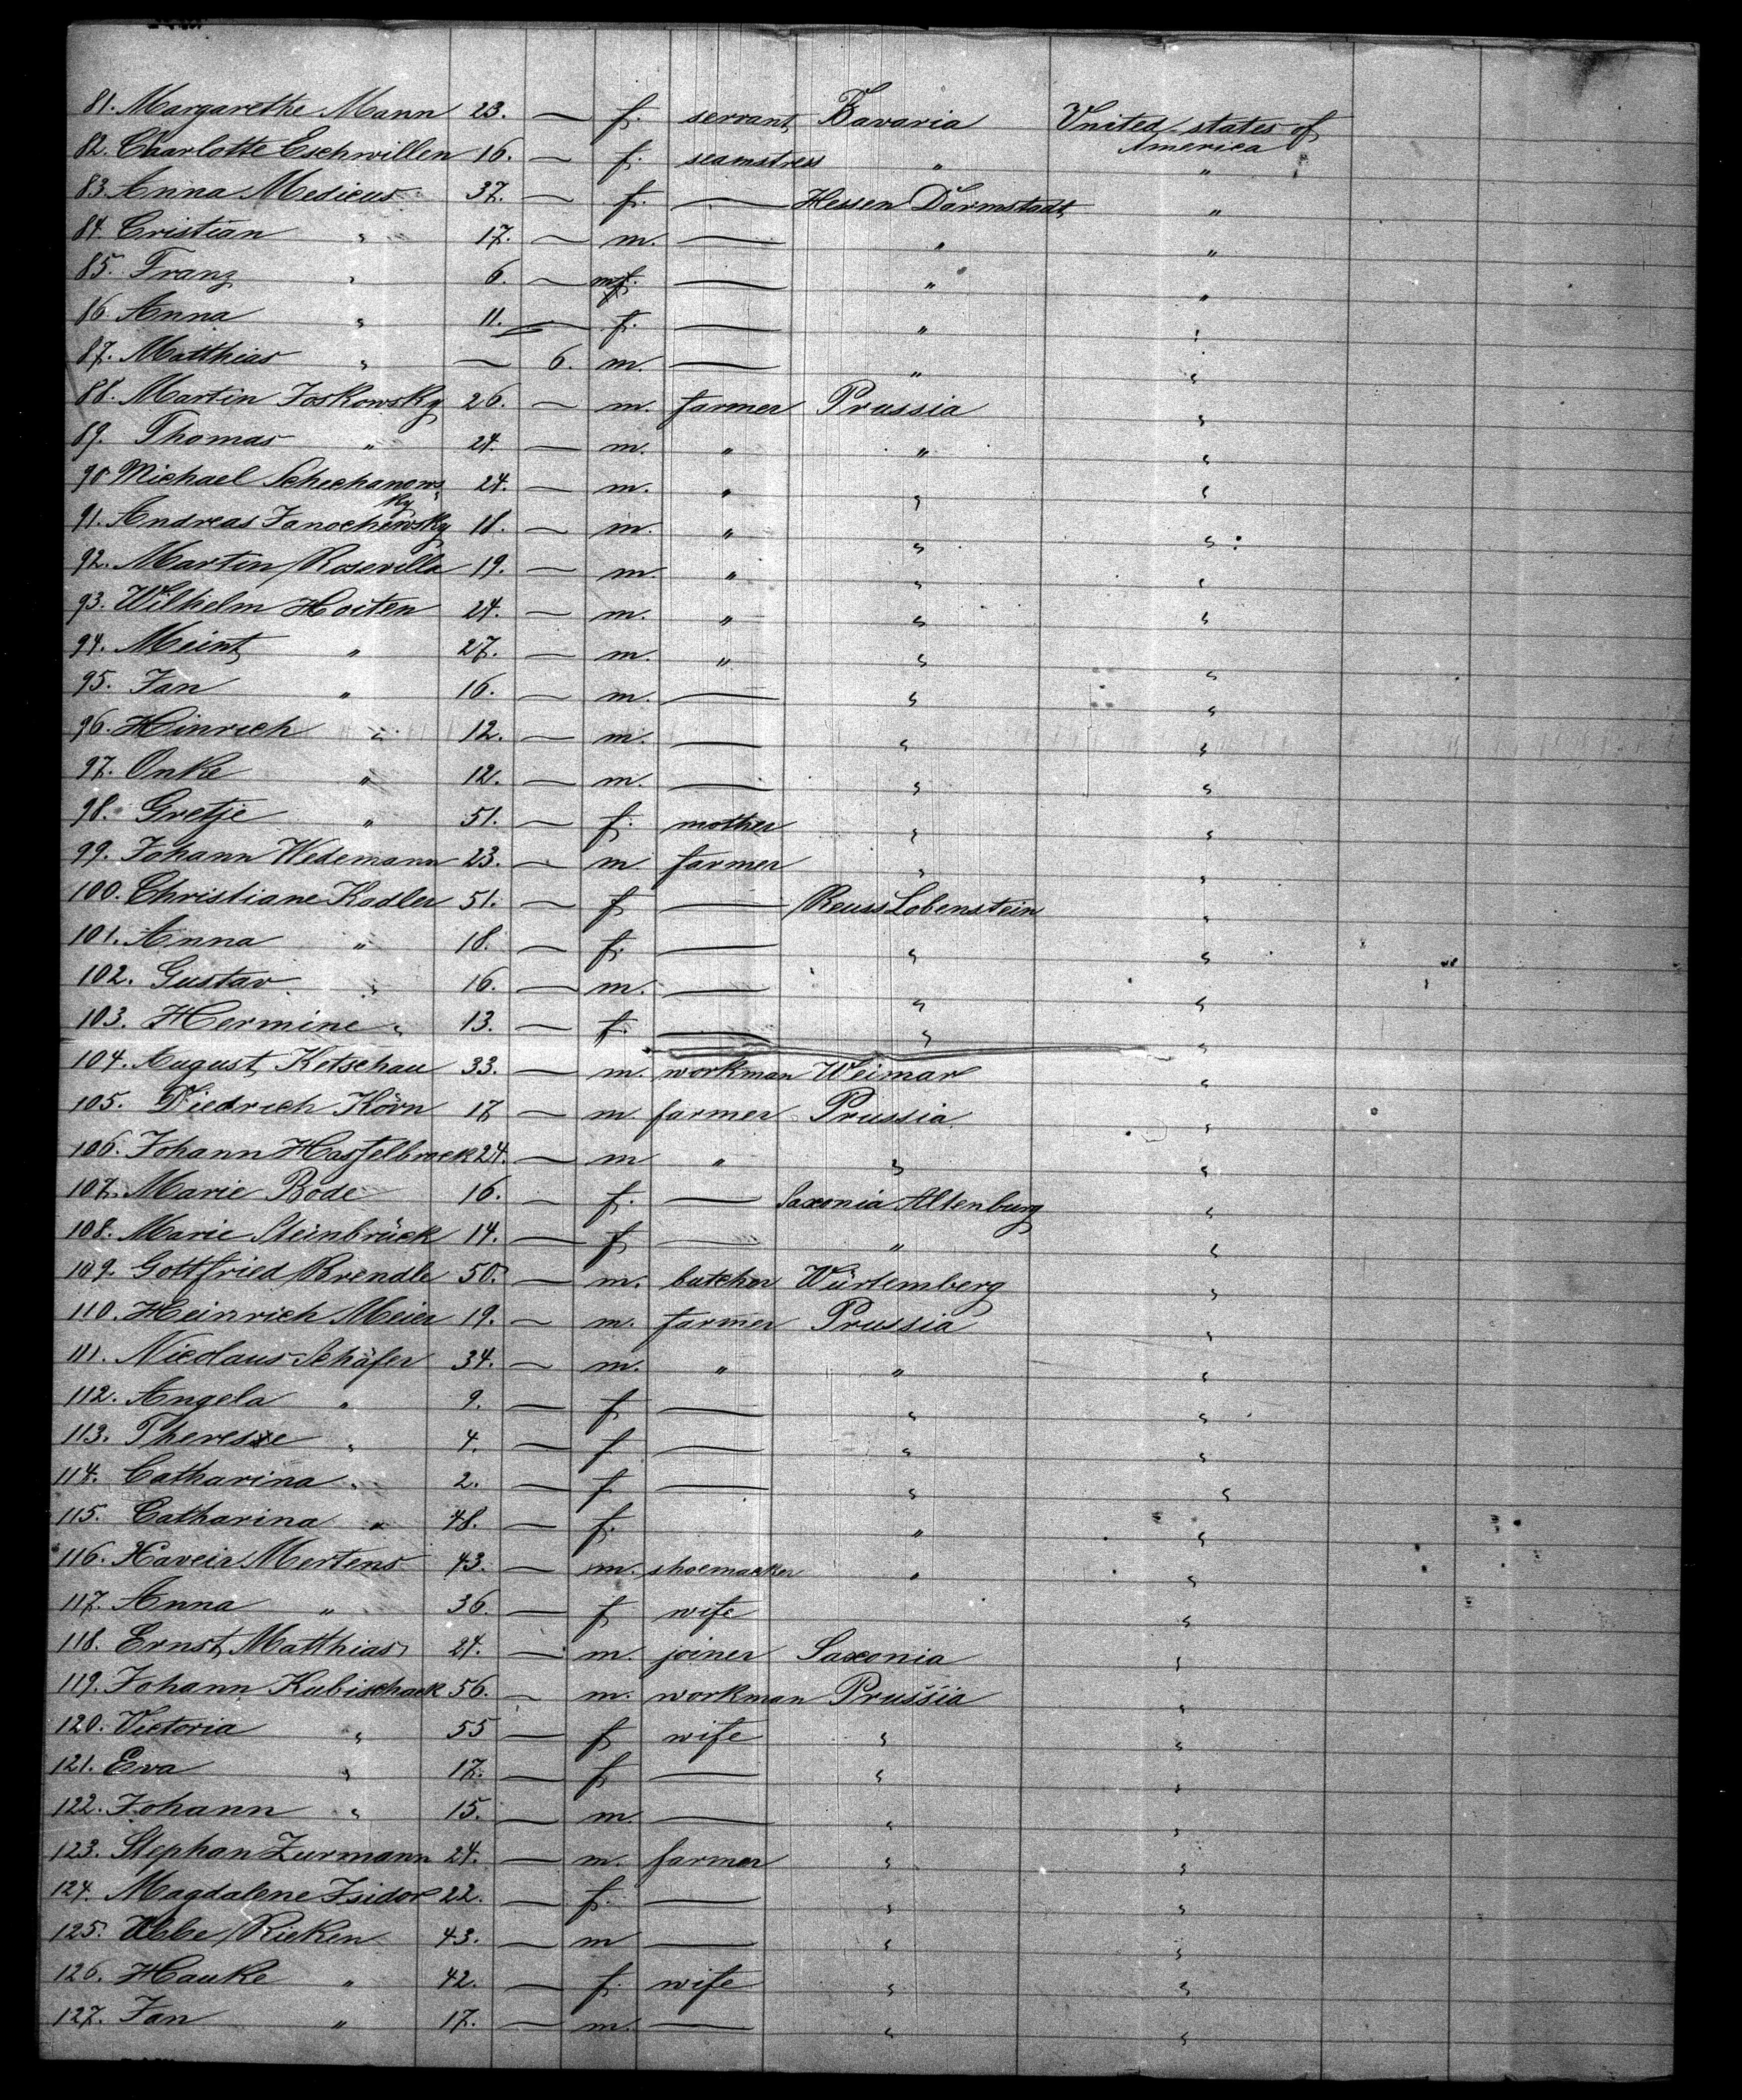 81. Margarethe Mann 23. — f. servant Bavaria United states of America
82. Charlotte Eschwillen 16. — f. seamstress " "
83. Anna Medicus 37. — f. — Hessen Darmstadt "
84. Cristian " 17. — m. — " "
85. Franz " 6. — m. — " "
86. Anna " 11. — f. — " "
87. Matthias " — 6. m. — " "
88. Martin Joskowsky 26. — m. farmer Prussia "
89. Thomas " 24. — m. " " "
90 Michael Schechanowsky 24. — m. " " "
91. Andreas Janochewsky 18. — m. " " "
92. Martin Rosevilla 19. — m. " " "
93. Wilhelm Hoiten 24. — m. " " "
94. Meint " 27. — m. " " "
95. Jan " 16. — m. — " "
96. Hinrich " 12. — m. — " "
97. Onke " 12. — m. — " "
98. Gretje " 51. — f. mother " "
99. Johann Wedemann 23. — m farmer " "
100. Christiane Kadler 51. — f — Reuss Lobenstein "
101. Anna " 18. — f. — " "
102. Gustav " 16. — m. — " "
103. Hermine " 13. — f. — " "
104. August Ketschau 33. — m. workman Weimar "
105. Diedrich Körn 17 — m farmer Prussia "
106. Johann Hasselbrock 24. — m " " "
107. Marie Bode 16. — f. — Saxonia Altenburg "
108. Marie Steinbrück 14. — f — " "
109. Gottfried Brendle 50. — m. butcher Würtemberg "
110. Heinrich Meier 19. — m. farmer Prussia "
111. Nicolaus Schäfer 34. — m. " " "
112. Angela " 9. — f — " "
113. Therese " 4. — f — " "
114. Catharina " 2. — f — " "
115. Catharina " 48. — f. " "
116. Xaveir Mertens 43. — m. shoemacker " "
117. Anna " 36. — f wife "
118. Ernst Matthias 24. — m. joiner Saxonia "
119. Johann Kubischack 56. — m. workman Prussia "
120. Victoria " 55 — f wife " "
121. Eva " 17. — f — " "
122. Johann " 15. — m. — " "
123. Stephan Zurmann 24. — m. farmer " "
124. Magdalene Isidor 22. — f. — " "
125. Ubbe Rieken 43. — m — " "
126. Hauke " 42. — f. wife " "
127. Jan " 17. — m. — " "